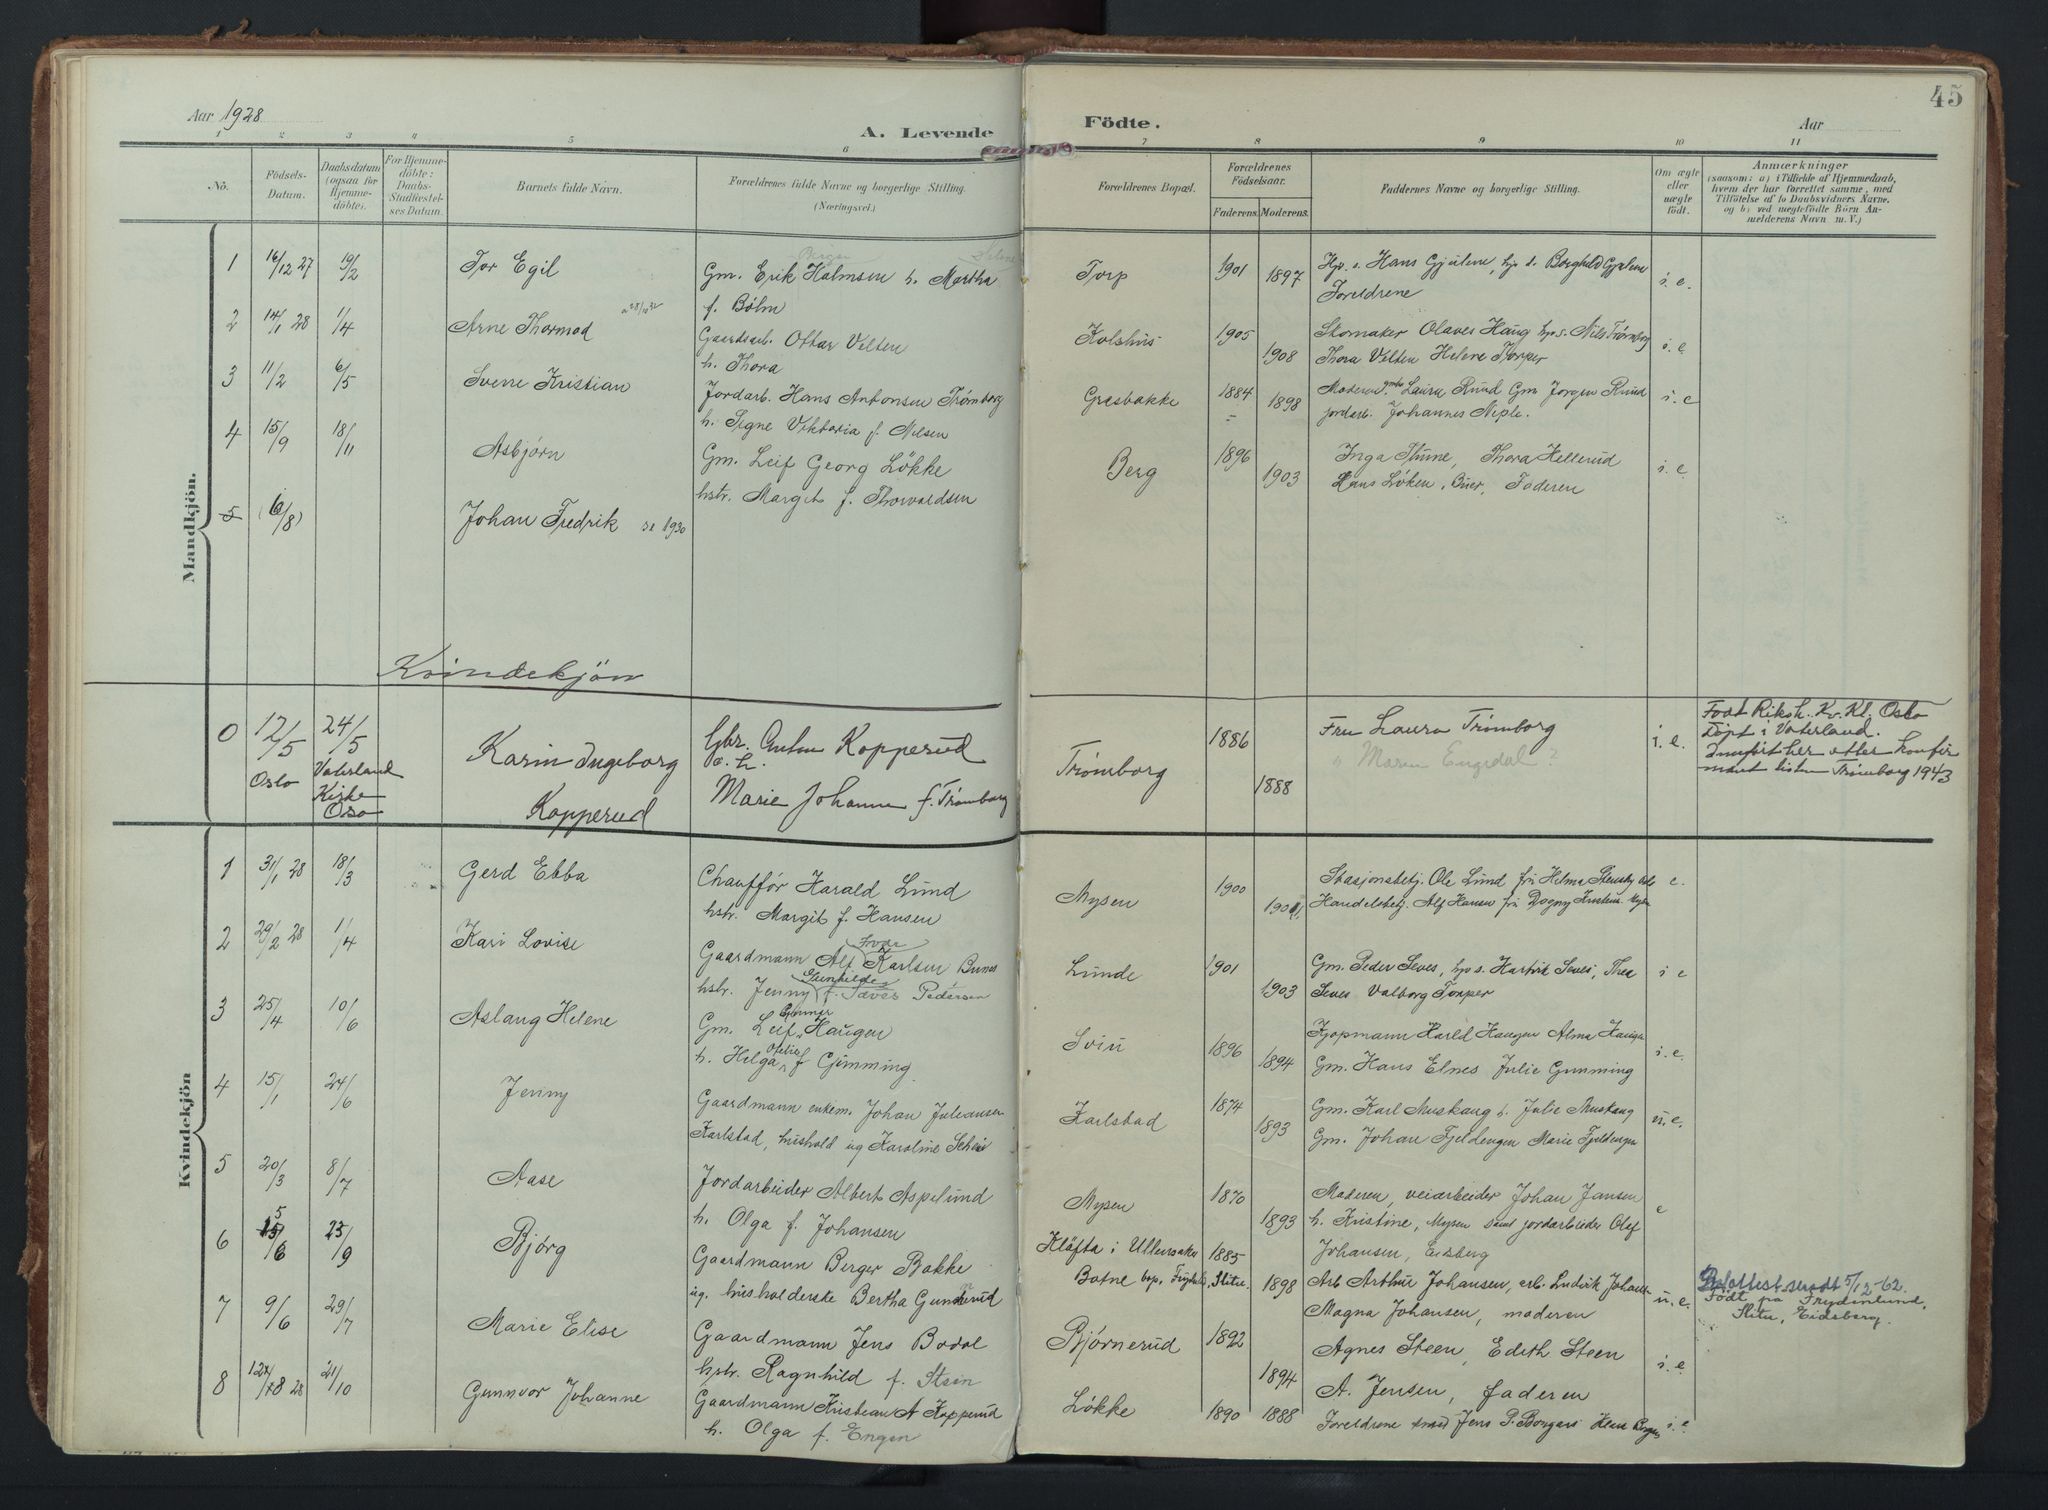 45
Aar 1928
A. Levende Födte.
Aar
1 2 3 4 5 6 7 8 9 10 11
Nö.
Födsels-Datum.
Daabsdatum (ogsaa for Hjemme-döbte).
For Hjemme-döbte: Daabs-Stadfæstel-ses Datum.
Barnets fulde Navn.
Forældrenes fulde Navne og borgerlige Stilling.
(Næringsvei.)
Forældrenes Bopæl.
Forældrenes Födselsaar.
Faderens. Moderens.
Faddernes Navne og borgerlige Stilling.
Om ægte eller uægte födt.
Anmærkninger
(saasom: a) i Tilfælde af Hjemmedaab, hvem der har forrettet samme, med Tilföielse af to Daabsvidners Navne, og b) ved uægtefödte Börn An-melderens Navn m. V.)
Mandkjön.
1 16/12 27 19/2 Tor Egil
Gm. Erik Birger Halmsen h. Martha
f. Bøhn
Torp 1901 1897
Hans Gjølene, Borghild Gjølene
Foreldrene
i. e.
2 14/1 28 1/4 Arne Thormod
Gaardsarb. Ottar Velten
h. Thora
Kolshus 1905 1908
Skomaker Olaves Haug hps. Nils Trømborg
Thora Velten Helene Torper
i. e.
3 11/2 6/5 Sverre Kristian
Jordarb. Hans Antonsen Trømborg
h. Signe Viktoria f. Nilsen
Græsbakke 1884 1898
Moderen, Laura Ruud Gm Jørgen Ruud
jordarb. Johannes Neple.
i. e
4 15/9 18/11 Asbjørn
Gm. Leif Georg Løkke
hstr. Margit f. Thorvaldsen
Berg 1896 1903
Inga Thune, Thora Hellerud
Hans Løken, Buer, Faderen
i. e
5 (6/8) Johan Fredrik se 1930
Kvindekjön
0 12/5 Oslo
24/5 Vaterland Kirke Oslo
Karin Ingeborg
Kopperud
Gbr. Anton Kopperud
o. h.
Marie Johanne f. Trømborg
Trømborg 1886 1888
Fru Laura Trømborg
" Maren Engedal?
i. e.
Født Riksh. Kv. Kl. Oslo
Døpt i Vaterland.
Innført her etter konfir
mant listen Trømborg 1943
Kvindekjön
1 31/1 28 18/3 Gerd Ebba
Chauffør Harald Lund
hstr. Margit f. Hansen
Mysen 1900
Stasjonsbetj. Ole Lund fru Helma
Handelsbetj. Alf Hansen frk Dagny
e.
2 29/2 28 1/4 Kari Lovise
Gaardmann Alf Karlsen Bunes
hstr. Jenny f. Sæves Pedersen
Lunde 1901 1903
Gm. Peder Seves, hps. Hartvik Seves, Thea
Seves Valborg Torper
i e
3 25/4 10/6 Aslaug Helene
Gm. Leif Haugen
h. Helga f Gimming
Sviu 1896 1894
Kjøpmann Harld Haugen Alma Haugen
Gm. Hans Elnes Julie Gimming
i. e.
4 15/1 24/6 Jenny
Gaardmann enkem. Johan Juliansen
Karlstad, hushold ug Karoline
Karlstad 1874 1893
Gm. Karl Muskaug h. Julie Muskaug
Gm. Johan Fjeldengen Marie Fjeldengen
u. e.
5 20/3 8/7 Aase
Jordarbeider Albert Aspelund
h. Olga f. Johansen
Mysen 1870 1893
Moderen, veiarbeider Johan Jansen
h. Kristine, Mysen samt jordarbeider Olef
Johansen, Eidsberg
e
6 5/6 23/9 Bjørg
Gaardmann Berger Bakke
ug. husholderske Bertha Gunderud
Kløfta i Ullensaker
Botne
1885 1898
Arb Arthur Johansen, arb. Ludvik Johansen
Magna Johansen, moderen
u. e.
5/12-62.
Født på Frydenlund,
Slitu, Eidsberg.
7 9/6 29/7 Marie Elise
Gaardmann Jens Bodal
hstr. Ragnhild f. Stein
Bjørnerud 1892 1894
Agnes Steen, Edith Steen
A. Jensen, faderen
i. e
8 28 21/10 Gunnvor Johanne
Gaardmann Kristian A Kopperud
h. Olga f. Engen
Løkke 1890 1888
Foreldrene samt Jens P. Borgen
i. e